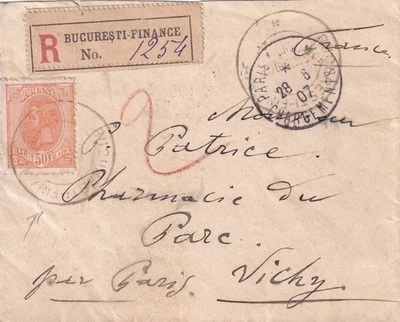 R BUCUREȘTI-FINANCE
No. 1254
France
PARIS
CHARGEMENTS
28 6
07
ROMANIA
50
2
Monsieur
P. Patrice.
Pharmacie du
Parc.
per Paris. Vichy.